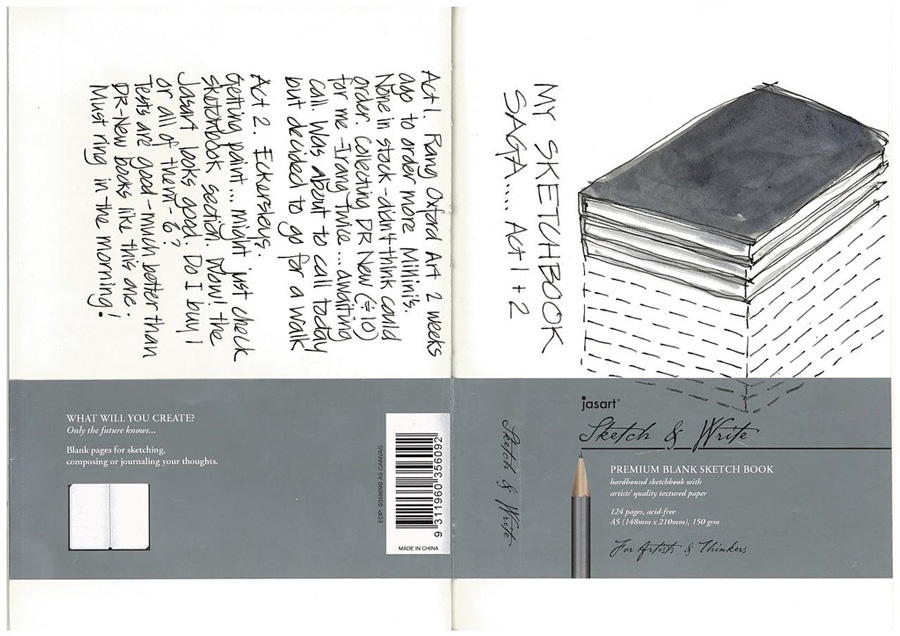 Act 1. Rang Oxford Art 2 weeks
ago to order more Millini's.
None in stock - didn't think could
order. Collecting DR New (#10)
for me - I rang twice... awaiting
call. Was about to call today
but decided to go for a walk
Act 2. Eckersleys.
Getting paint... might just check
sketchbook section. Wow! the
Jasart books good. Do I buy 1
or all of them - 6?
Tests are good - much better than
DR-New books like this one.
Must ring in the morning!
MY SKETCHBOOK
SAGA.... Act 1 + 2
WHAT WILL YOU CREATE?
Only the future knows...
Blank pages for sketching,
composing or journaling your thoughts.
EDP: 0356090 A5 CANVAS
9 311960 356092
MADE IN CHINA
Sketch & Write
jasart®
Sketch & Write
PREMIUM BLANK SKETCH BOOK
hardbound sketchbook with
artists' quality textured paper
124 pages, acid-free
A5 (148mm x 210mm), 150 gsm
For Artists & Thinkers